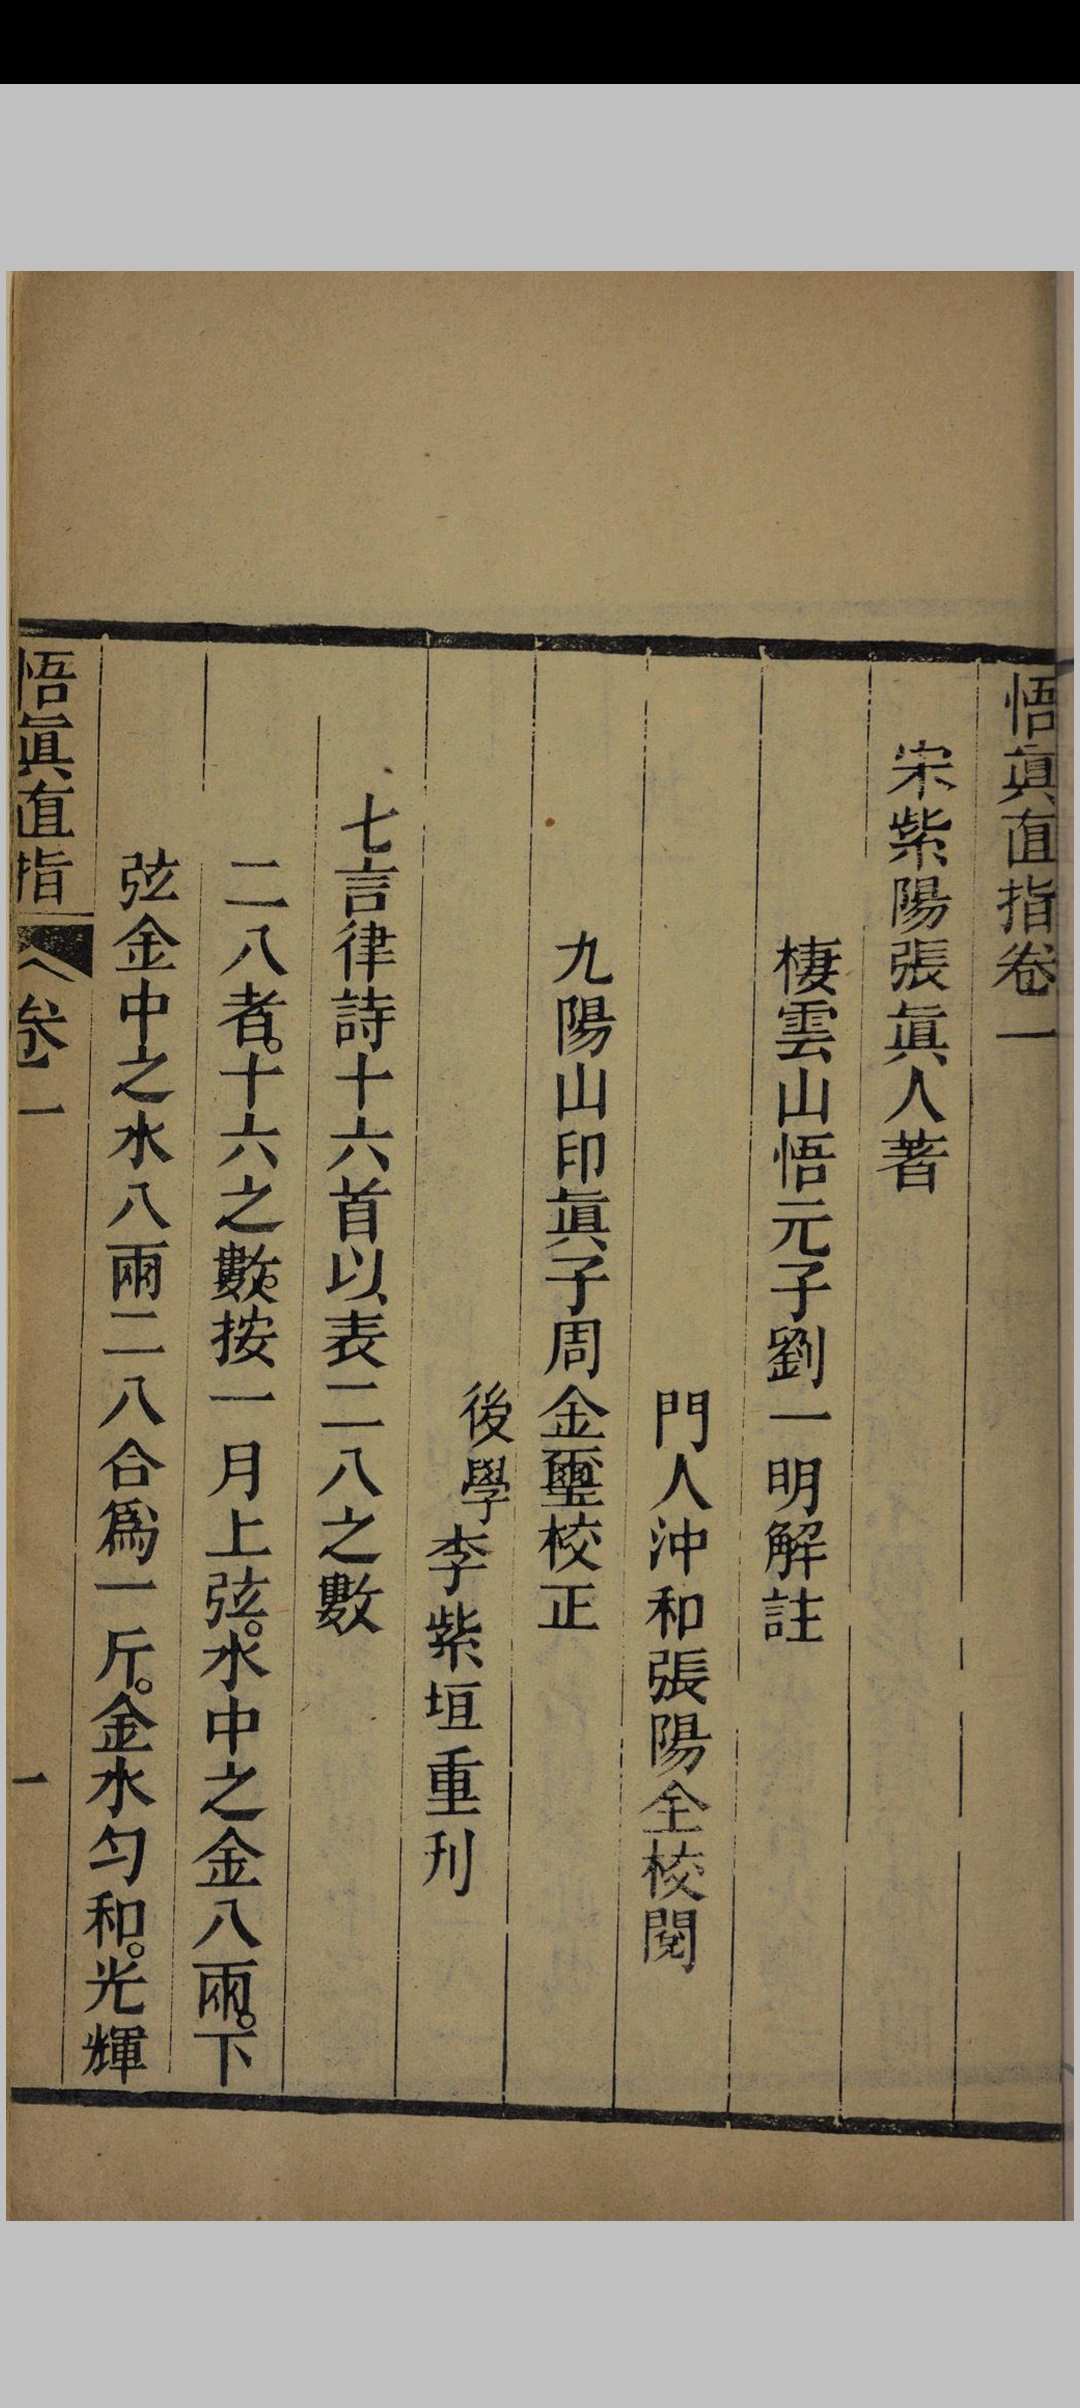 悟眞直指卷一
宋紫陽張眞人著
棲雲山悟元子劉一明解註
門人沖和張陽全校閱
九陽山印眞子周金璽校正
後學李紫垣重刊
七言律詩十六首以表二八之數
二八者。十六之數。按一月上弦。水中之金八兩。下
弦金中之水八兩二八合爲一斤。金水勻和。光輝
悟眞直指 卷一 一